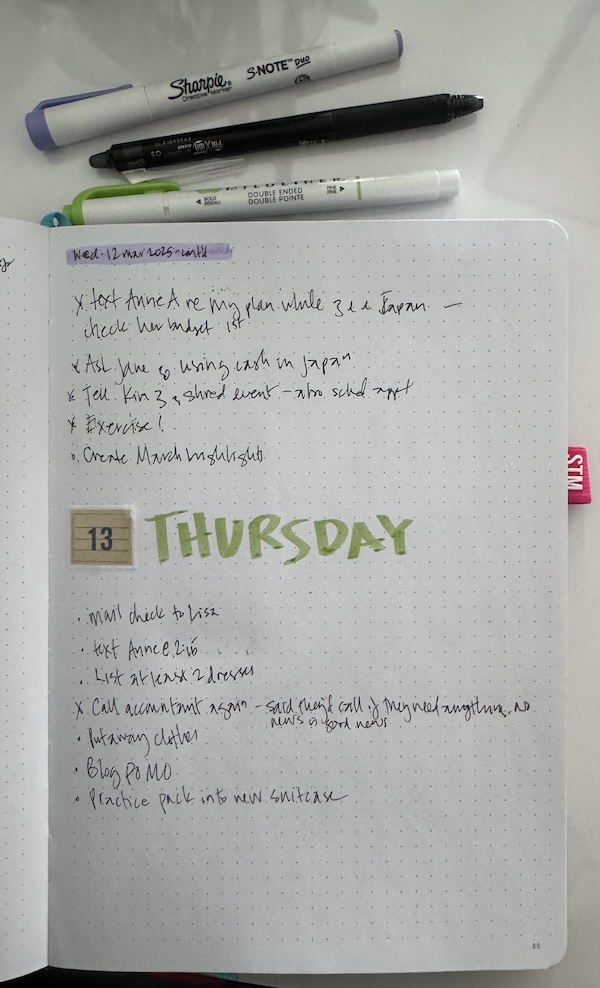 Sharpie®
Creative Marker
S·NOTE™ DUO
FriXion
0.5
MILDLINER
BOLD
BISEAU
DOUBLE ENDED
DOUBLE POINTE
FINE
FINE
Wed. 12 mar 2025 - cont'd
x text Anne A re my plan while in Japan —
check her budget 1st
x Ask Jane using cash in Japan
x Tell Kin shred event - also schd. appt
x Exercise!
• Create March highlights
STM
13 THURSDAY
• mail check to Lisa
• text Anne
• List at least 2 dresses
x Call accountant again - said they'd call if they need anything. no
news is good news
• Put away clothes
• Blog PoMo
• Practice pack into new suitcase
80